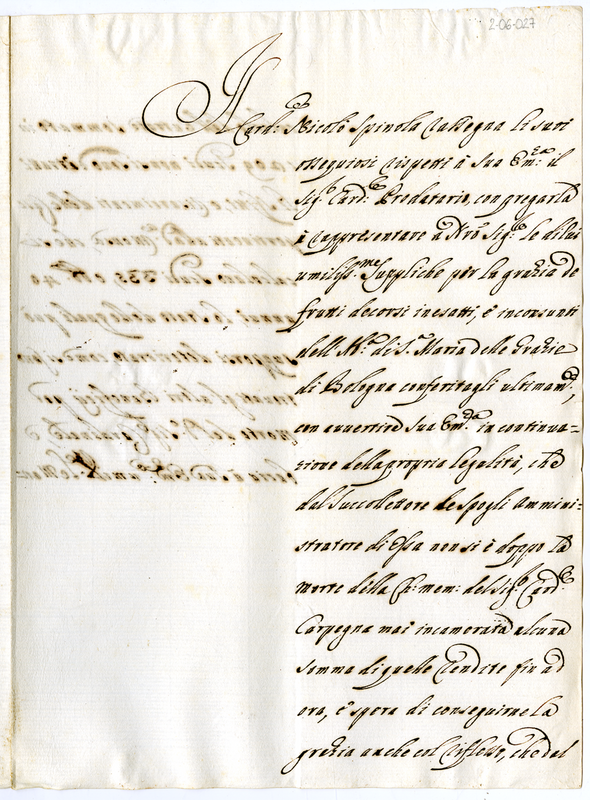 2-06-027
Il
Card:e Nicolò Spinola rassegna li suoi
ossequiosi rispetti à Sua Em:za il
Sig:r Card:e Prodatario, con pregarla
à rappresentare à Nro Sig:re le di lui
umiliss:me Suppliche per la grazia de
frutti decorsi inesatti, è inconsunti
dell'Abb:a di S. Maria delle Grazie
di Bologna conferitagli ultimam:e,
con avvertire Sua Em:za in continua=
zione della propria legalità, che
dal Succollettore de Spogli Ammini=
stratore di Essa non si è doppo la
morte della Ch: mem: del Sig:r Card:e
Carpegna mai incamerata alcuna
somma di quelle rendite fin ad
ora, è spera di conseguirne la
grazia anche col riflesso, che del